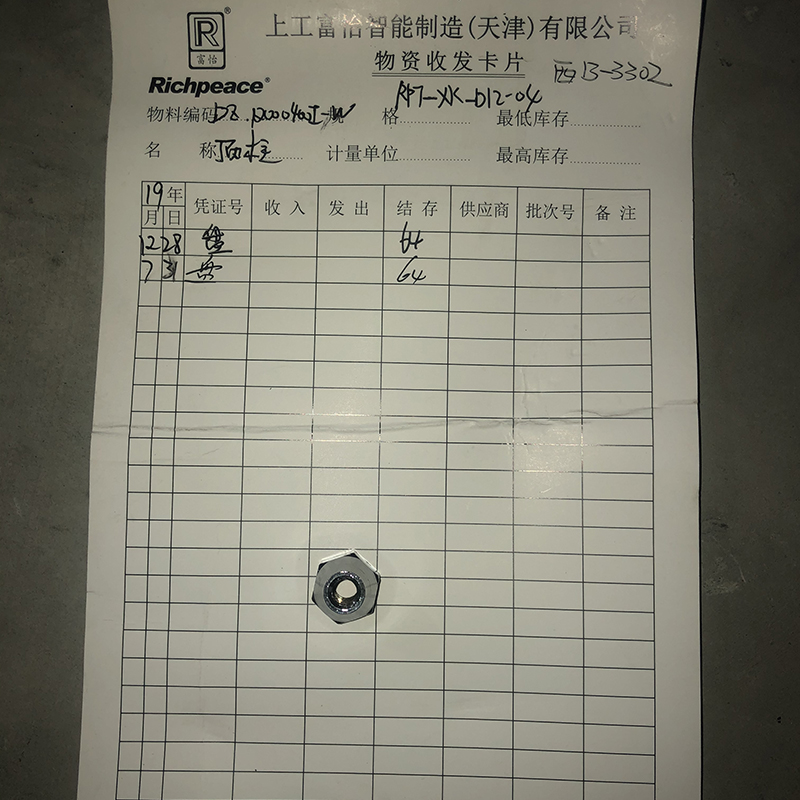 R®
富怡
Richpeace®
上工富怡智能制造(天津)有限公司
物资收发卡片
西13-3302
物料编码 规 格 最低库存
名 称 顶柱 计量单位 最高库存
19年 凭证号 收入 发出 结存 供应商 批次号 备注
月 日
12 28 盘 64
7 31 盘 64